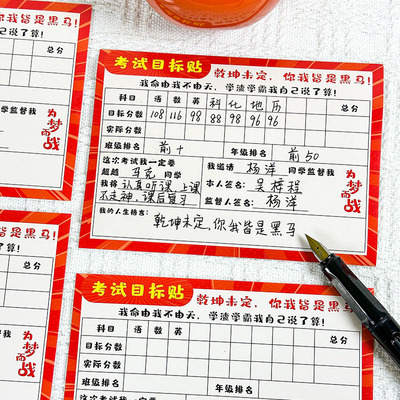 总分
同学监督我
为梦而战
考试目标贴 乾坤未定,你我皆是黑马!
我命由我不由天,学渣学霸我自己说了算!
科目 语 数 英 科 化 地 历 总分
目标分数 108 116 98 88 98 96 96
实际分数
班级排名 前十 年级排名 前50
这次考试我一定要
超越 马克 同学
我将认真听课,上课
不走神,课后复习
我邀请 杨洋 同学监督我
本人签名: 吴梓程
监督人签名: 杨洋
为梦而战
我的人生格言:
乾坤未定,你我皆是黑马
你我皆是黑马!
我自己说了算!
总分
年级排名
同学监督我
为梦而战
考试目标贴 乾坤未定,你我皆是黑马!
我命由我不由天,学渣学霸我自己说了算!
科目 语 数 英 总分
目标分数
实际分数
班级排名 年级排名
这次考试我一定要